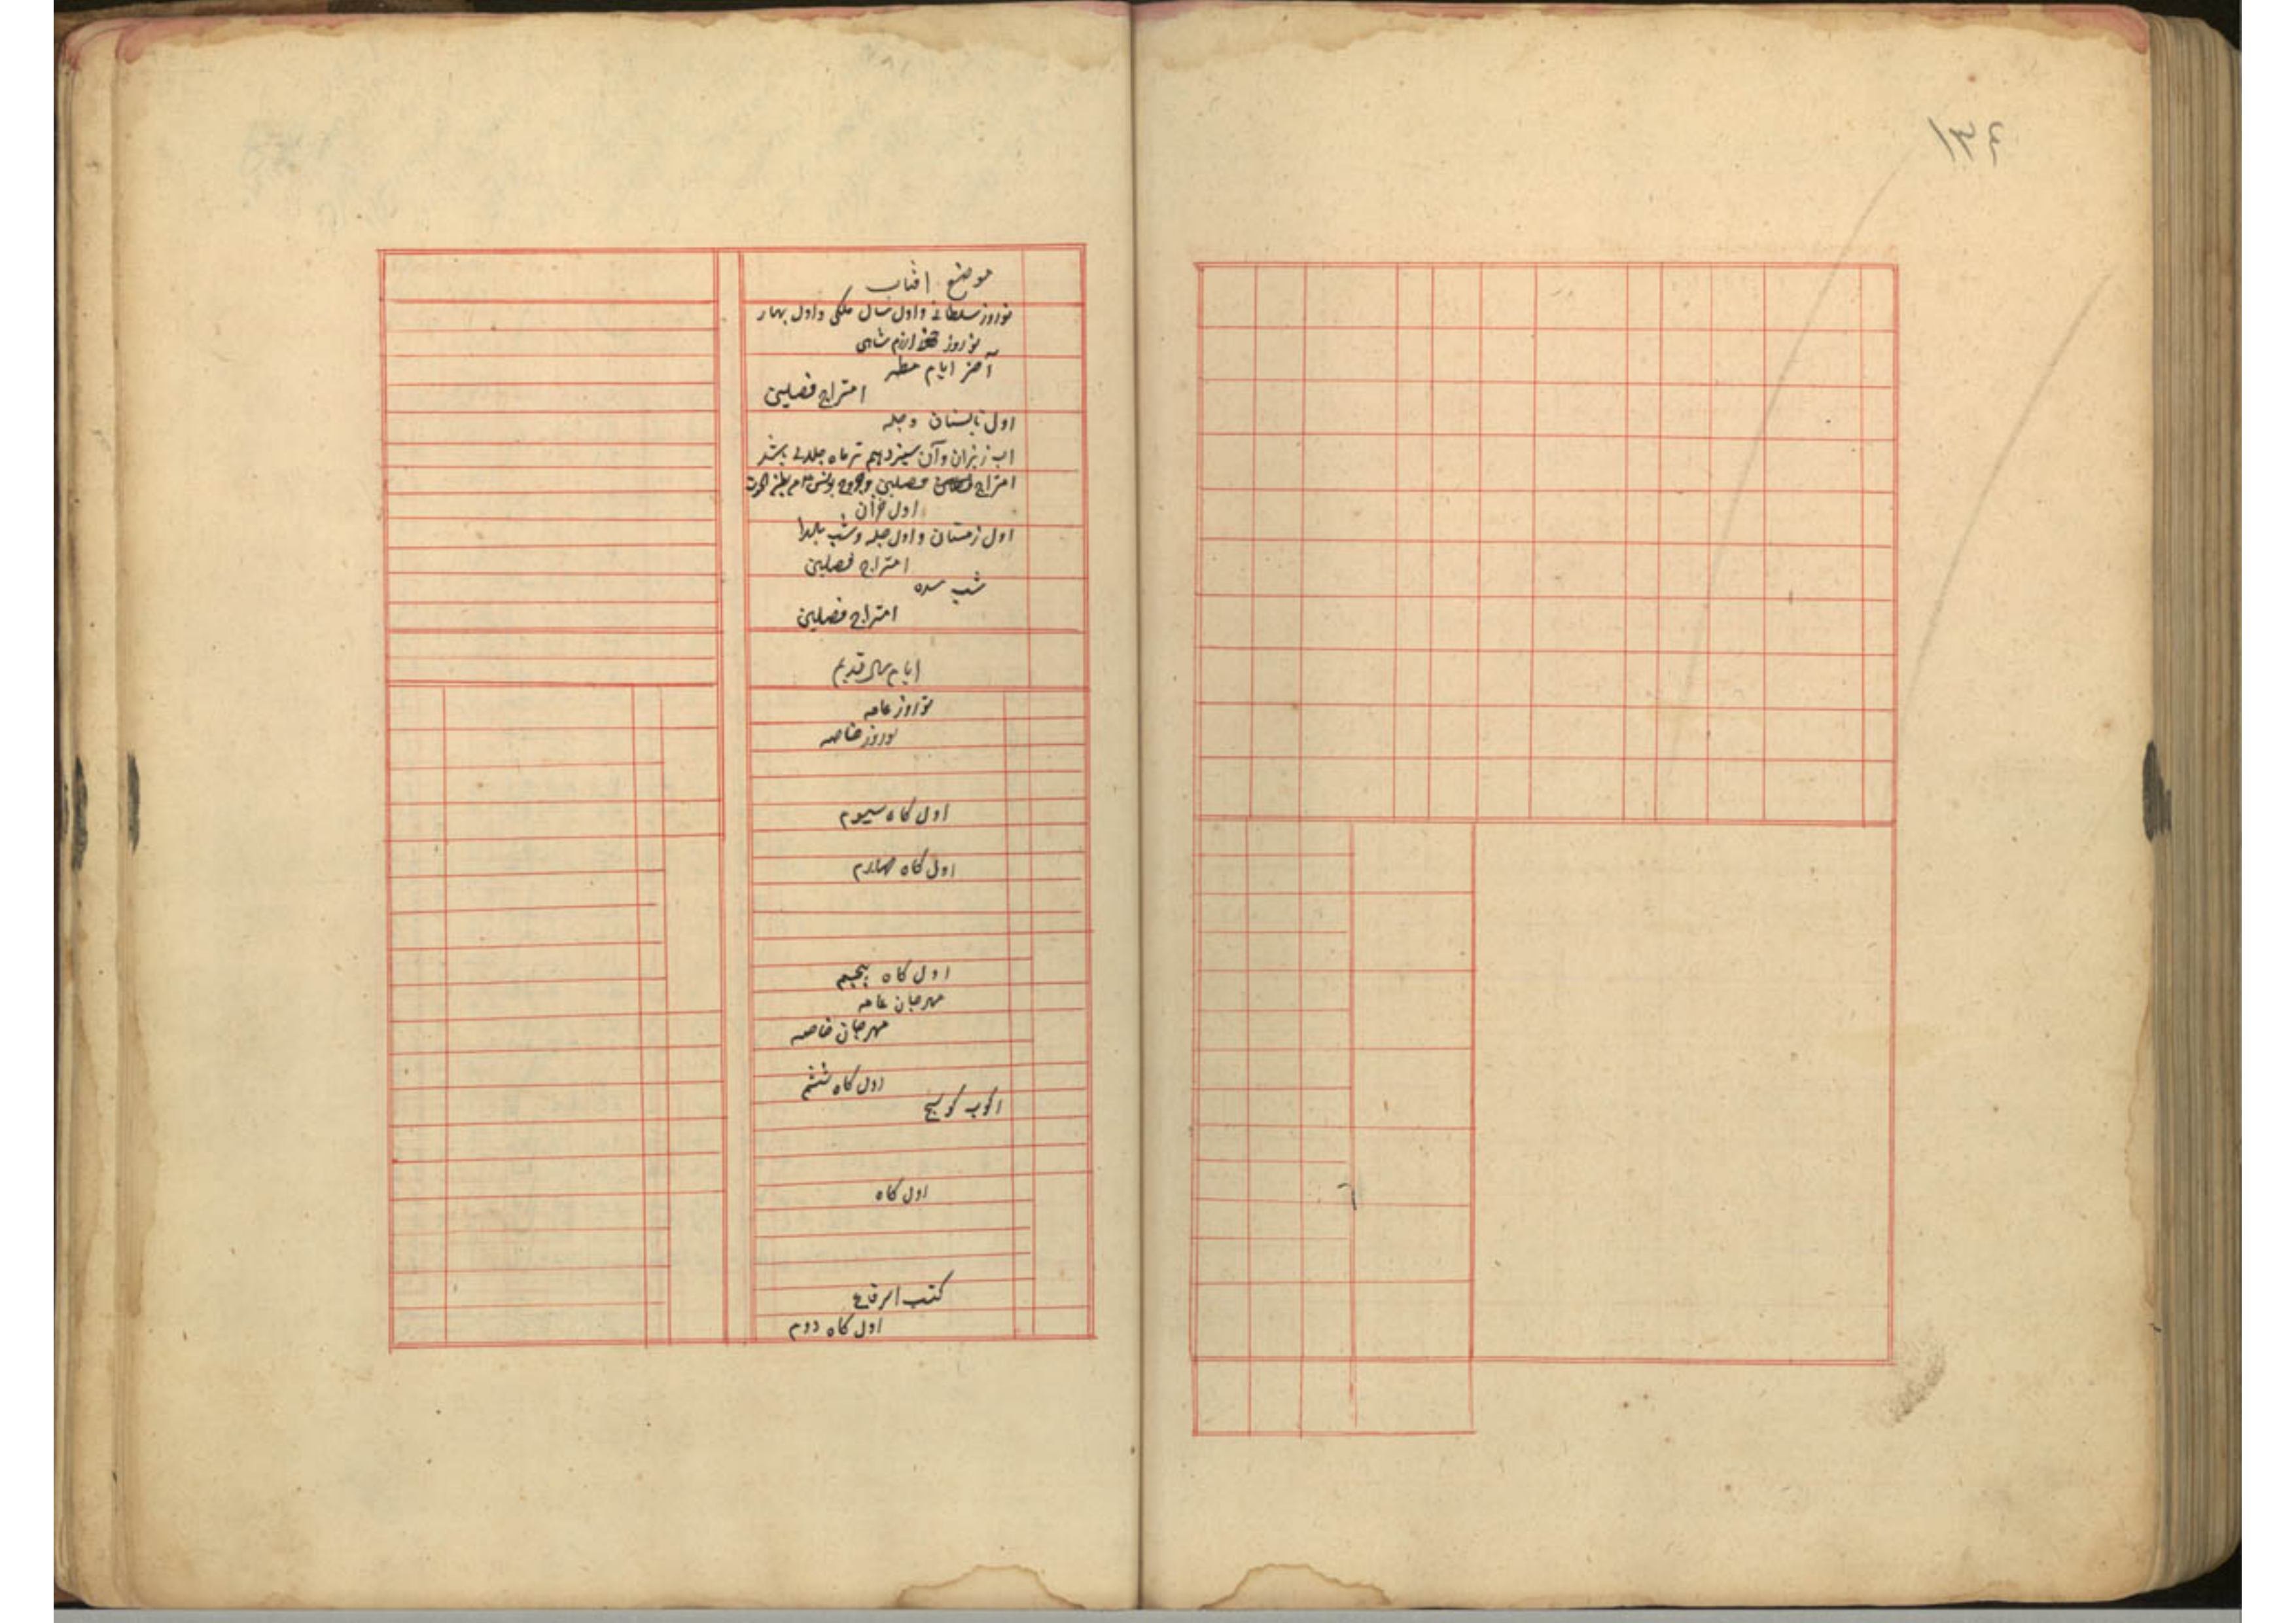 ۱۳۴
موضع افتاب
نوروز سلطانی و اول سال ملکی و اول بهار
نوروز خوارزم شاهی
آخر ایام مطر
امتزاج فصلین
اول تابستان و چله
اب ریزان و آن سیزدهم تیر ماه جلالی باشد
امتزاج فصلین و خروج یونس
اول خزان
اول زمستان و اول چله و شب یلدا
امتزاج فصلین
شب سده
امتزاج فصلین
ایام سال قدیم
نوروز عامه
نوروز خاصه
اول کاه سیوم
اول کاه چهارم
اول کاه پنجم
مهرجان عامه
مهرجان خاصه
اول کاه ششم
رکوب کوسج
اول کاه
کتب الرقاع
اول کاه دوم